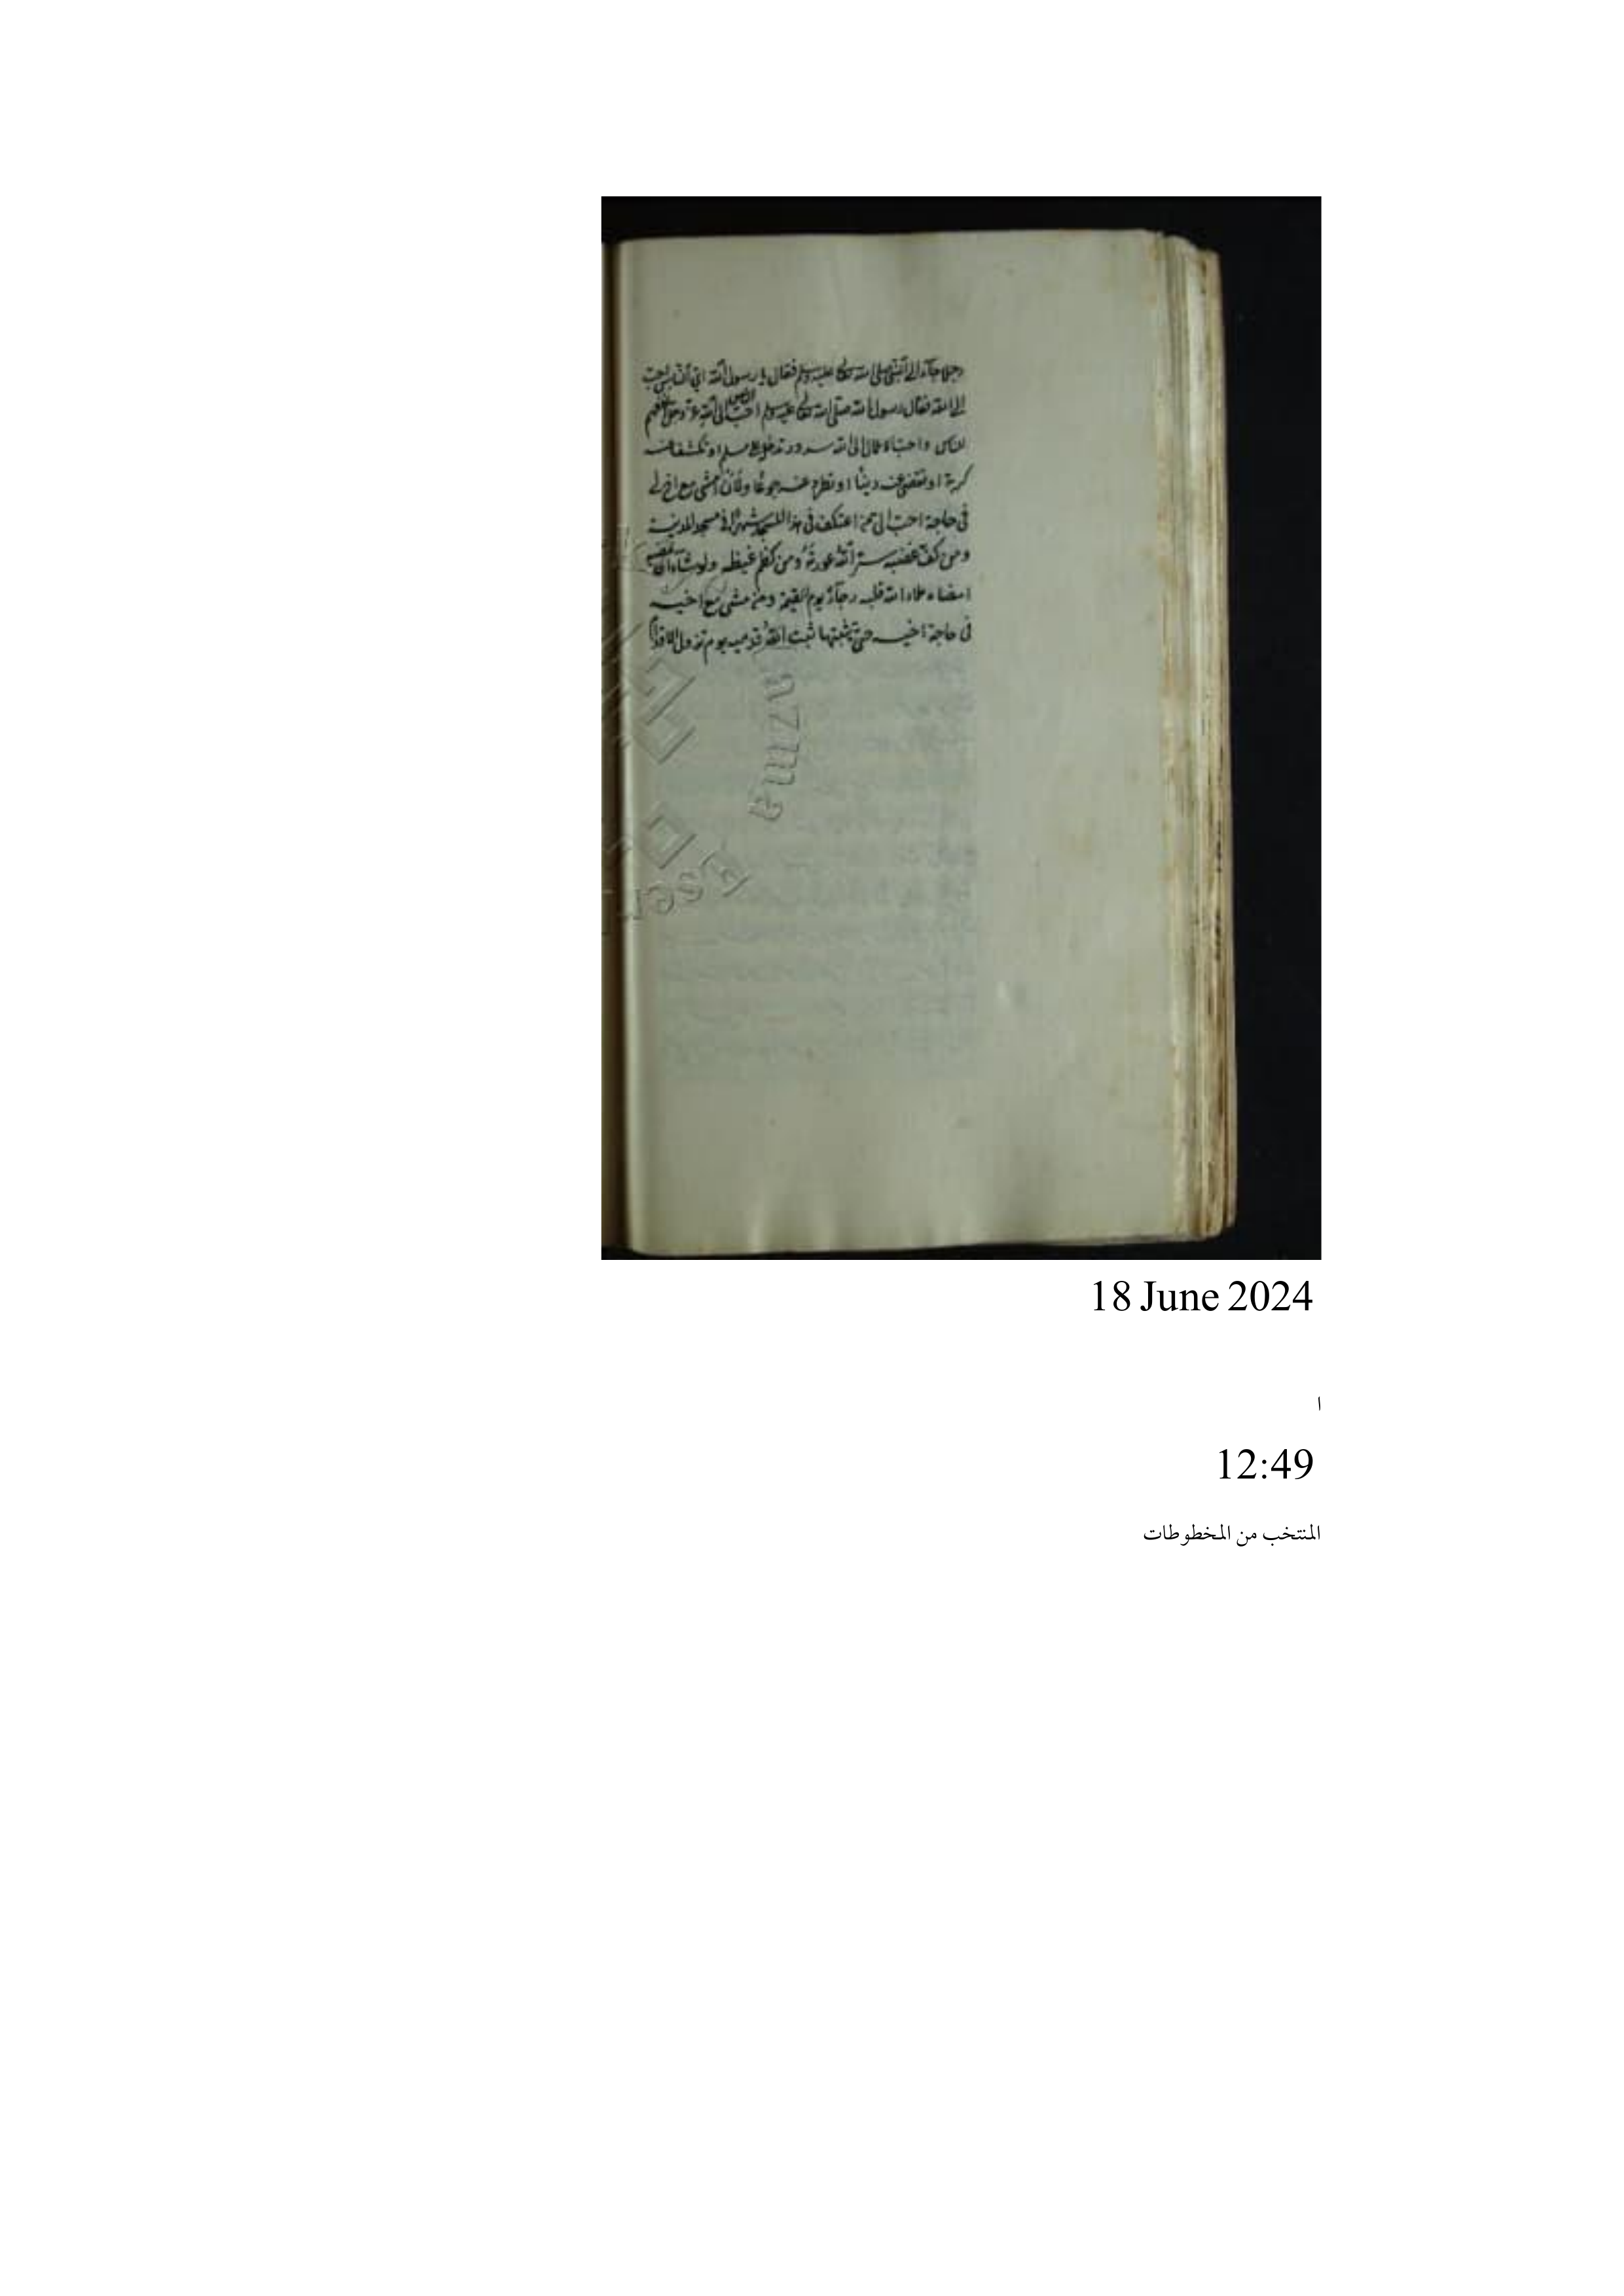 رجلا جآء الى النبي صلى الله تعالى عليه وسلم فقال يا رسول الله اي الناس احب
الى الله فقال رسول الله صلى الله تعالى عليه وسلم احب الناس الى الله عز وجل انفعهم
للناس واحب الاعمال الى الله سرور تدخل على مسلم او تكشف عنه
كربة او تقضى عنه دينا او تطرد عنه جوعا ولأن امشى مع اخ لى
فى حاجة احب الى من اعتكف فى هذا المسجد شهرا فى مسجد المدينة
ومن كف غضبه ستر الله عورته ومن كظم غيظه ولو شاء ان يمضيه
امضاه ملاء الله قلبه رجآء يوم القيمة ومن مشى مع اخيه
فى حاجة اخيه حتى يثبتها ثبت الله قدميه يوم تزول الاقدام
18 June 2024
ا
12:49
المنتخب من المخطوطات